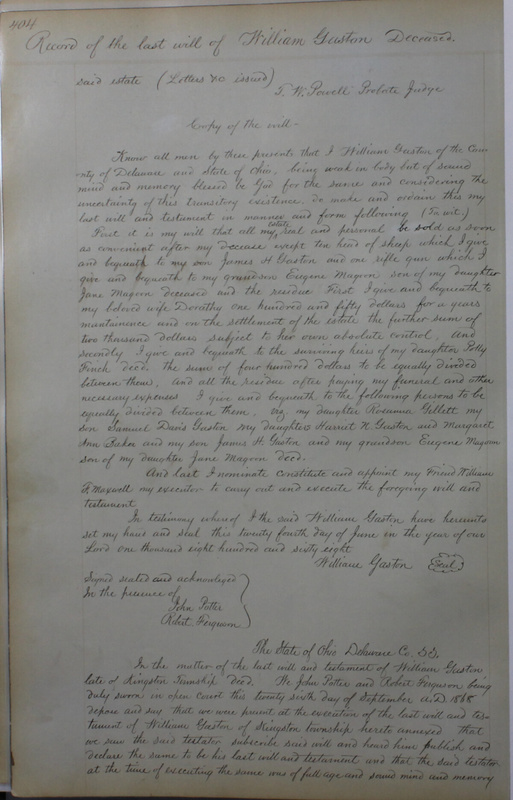 404
Record of the last will of William Gaston Deceased.
said estate (Letters &c issued)
T. W. Powell Probate Judge
Copy of the will -
Know all men by these presents that I William Gaston of the Coun
ty of Delaware and State of Ohio, being weak in body but of sound
mind and memory blessed be God for the same and considering the
uncertainty of this transitory existence, do make and ordain this my
last will and testament in manner and form following (To wit.)
First it is my will that all my estate real and personal be sold as soon
as convenient after my decease except ten head of sheep which I give
and bequeath to my son James H Gaston and one rifle gun which I
give and bequeath to my grandson Eugene Magoon son of my daughter
Jane Magoon deceased and the residue First I give and bequeath to
my beloved wife Dorothy one hundred and fifty dollars for a years
maintainence and on the settlement of the estate the further sum of
two thousand dollars subject to her own absolute control, And
secondly I give and bequeath to the surviving heirs of my daughter Polly
Finch decd. the sum of four hundred dollars to be equally divided
between them, And all the residue after paying my funeral and other
necessary expenses I give and bequeath to the following persons to be
equally divided between them, viz my daughter Rosanna Gillett my
son Samuel Davis Gaston my daughters Harriet N. Gaston and Margaret
Ann and my son James H. Gaston and my grandson Eugene Magoon
son of my daughter Jane Magoon decd.
And last I nominate constitute and appoint my Friend William
F. Maxwell my executor to carry out and execute the foregoing will and
testament
In testimony whereof I the said William Gaston have hereunto
set my hand and seal this twenty fourth day of June in the year of our
Lord one thousand eight hundred and sixty eight
William Gaston Seal
Signed sealed and acknowledged
In the presence of
John Potter
Robert Ferguson
The State of Ohio Delaware Co, SS.
In the matter of the last will and testament of William Gaston
late of Kingston Township decd. We John Potter and Robert Ferguson being
duly sworn in open Court this twenty sixth day of September A.D. 1868
depose and say that we were present at the execution of the last will and tes-
tament of William Gaston of Kingston township hereto annexed That
we saw the said testator subscribe said will and heard him publish and
declare the same to be his last will and testament and that the said testator
at the time of executing the same was of full age and sound mind and memory